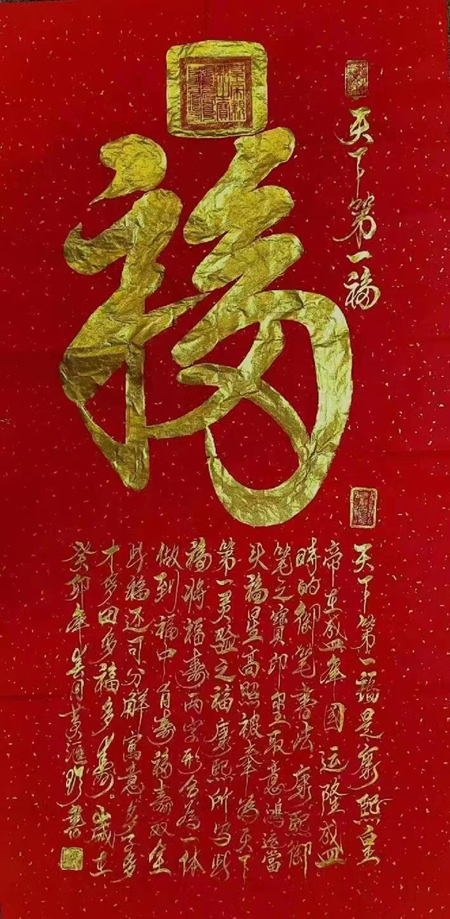 天下第一福
福
天下第一福是康熙皇
帝在盛年国运隆盛
時的御笔書法康熙御
笔之寳印玺取意鴻运當
头福星高照被奉为天下
第一美之福康熙所写此
福将福壽两字形合为一体
做到福中有壽福壽双全
此福还可分解寓意多子多
才多田多福多壽。岁在
癸卯年書